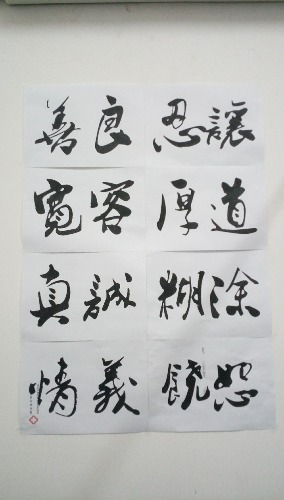 善良
忍讓
寬容
厚道
真誠
糊涂
情義
饒恕